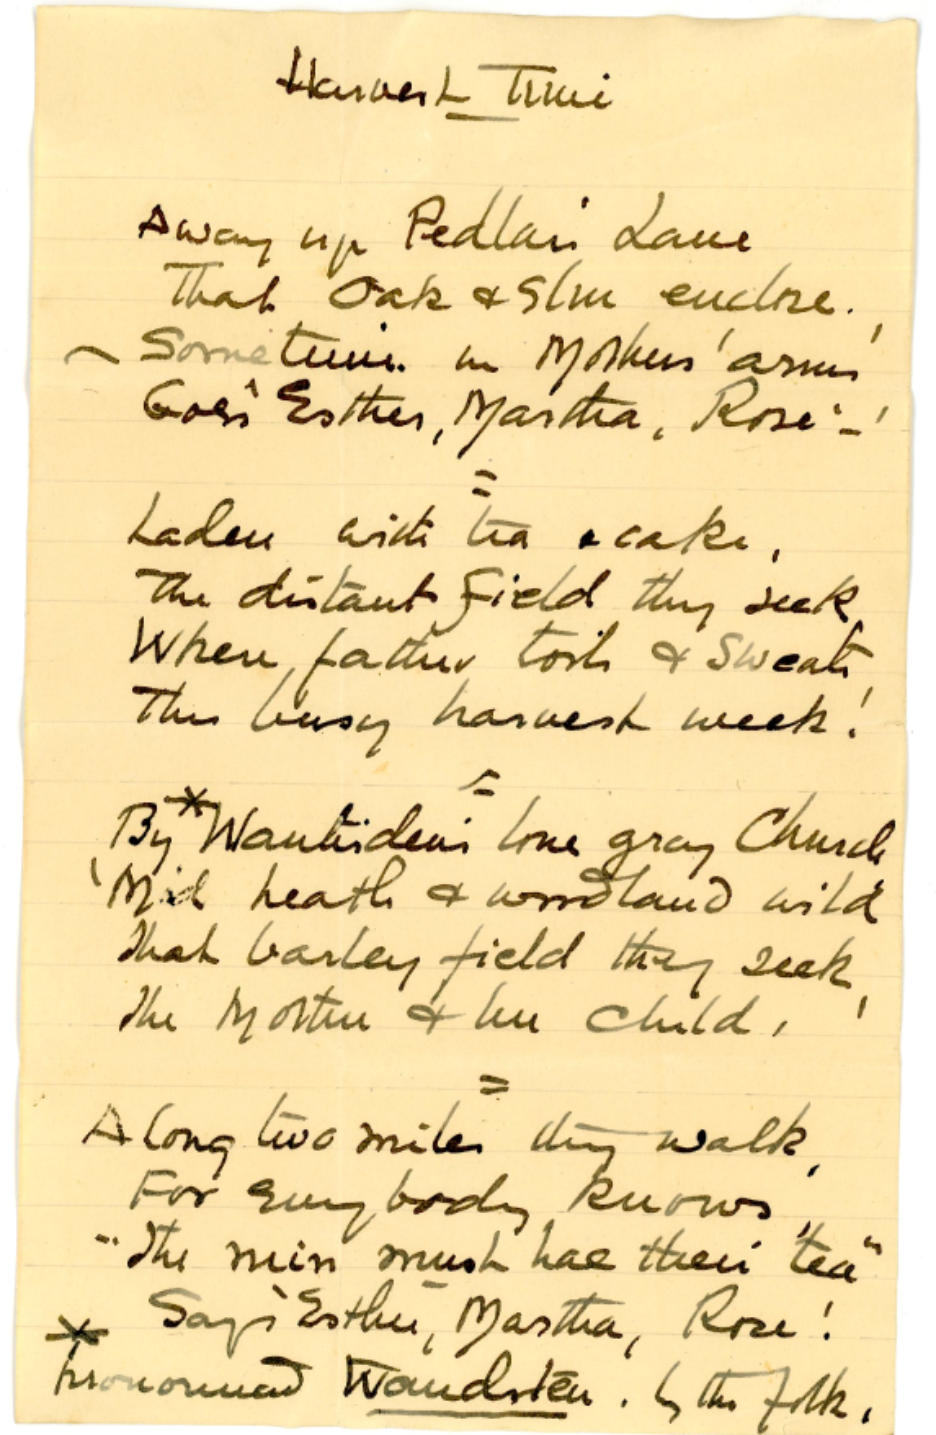 Harvest Time
Away up Pedlars Lane
That Oak & Elm enclose.
~ Sometimes in Mothers' arms
Goes 'Esther, Martha, Rose' - !
=
Laden with tea & cake,
The distant field they seek,
Where father toils & sweats
This busy harvest week!
=
By *Wantisden's lone gray Church
'Mid heath & woodland wild
That barley field they seek,
The Mother & her child, !
=
A long two miles they walk,
For everybody knows,
"The min must hae their "tea"
Says 'Esther, Martha, Rose!
* pronounced Wandsten. by the folk.